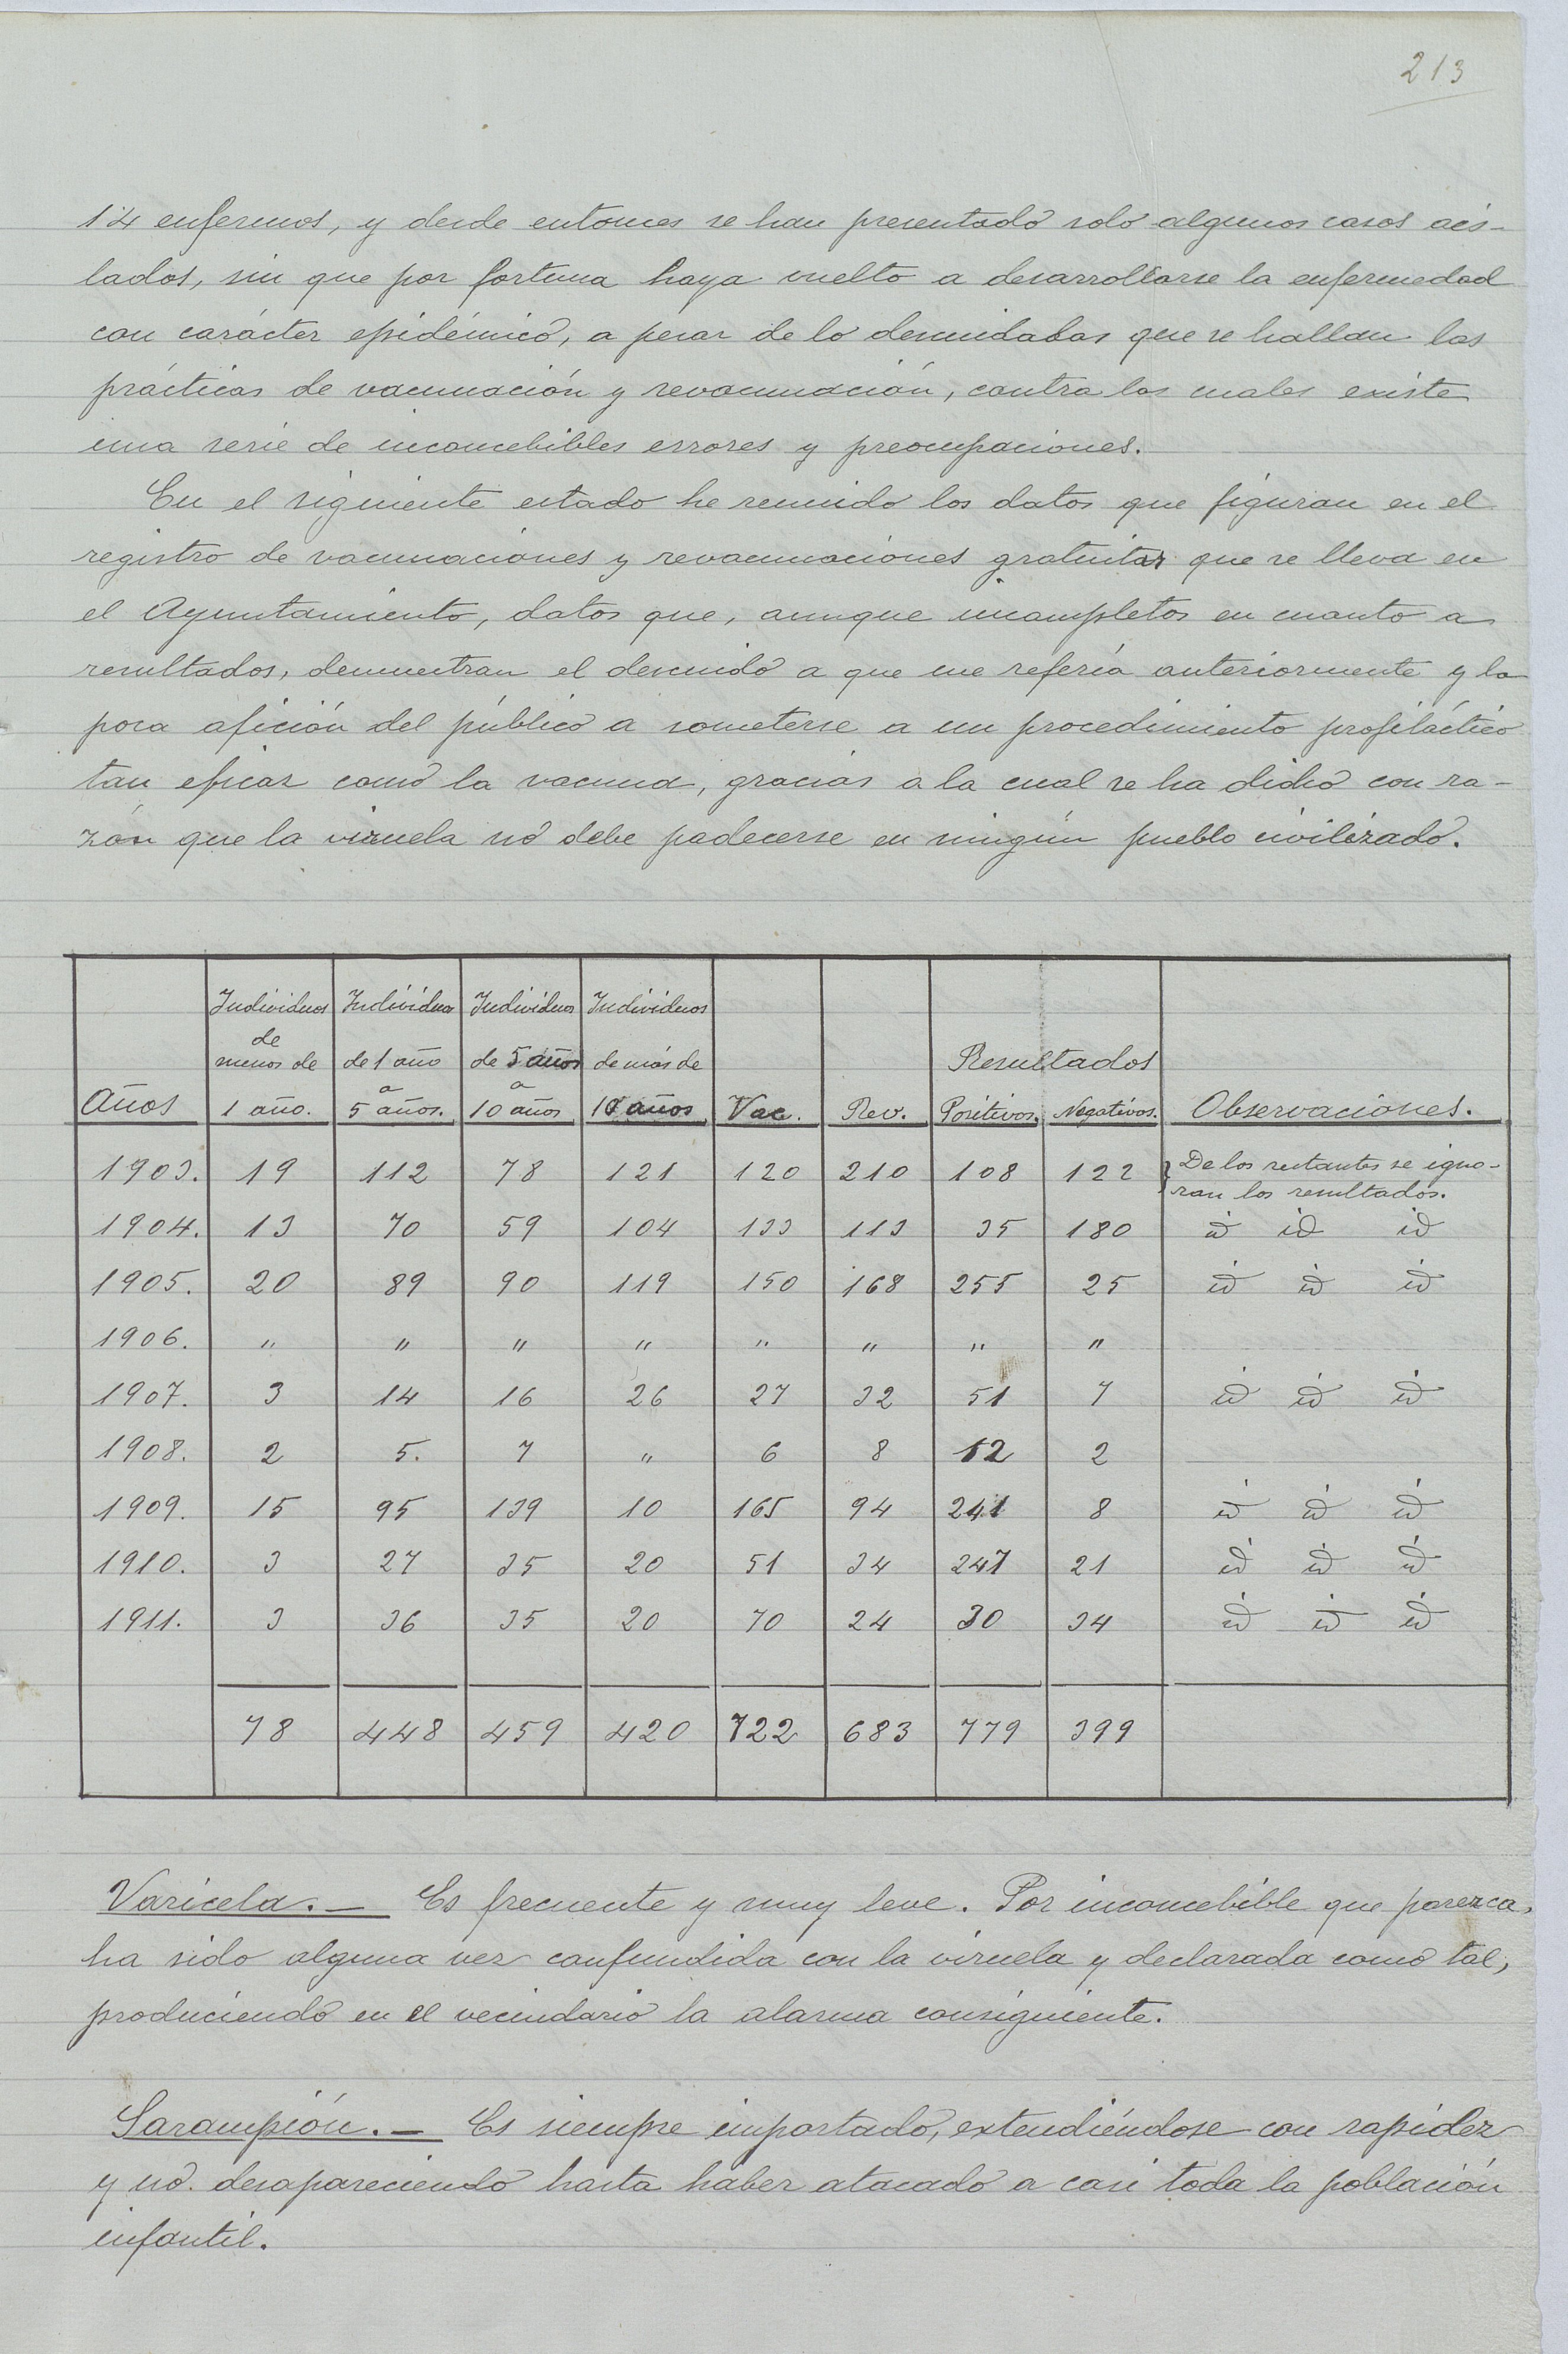 213
14 enfermos, y desde entonces se han presentado solo algunos casos ais-
lados, sin que por fortuna haya vuelto a desarrollarse la enfermedad
con carácter epidémico, a pesar de lo descuidadas que se hallan las
prácticas de vacunación y revacunación, contra las cuales existe
una serie de inconcebibles errores y preocupaciones.
En el siguiente estado he reunido los datos que figuran en el
registro de vacunaciones y revacunaciones gratuitas que se lleva en
el Ayuntamiento, datos que, aunque incompletos en cuanto a
resultados, demuestran el descuido a que me refería anteriormente y la
poca afición del público a someterse a un procedimiento profiláctico
tan eficaz como la vacuna, gracias a la cual se ha dicho con ra-
zón que la viruela no debe padecerse en ningún pueblo civilizado.
Años | Individuos de menos de 1 año. | Individuos de 1 año a 5 años. | Individuos de 5 años a 10 años | Individuos de más de 10 años | Vac. | Rev. | Resultados Positivos. | Negativos. | Observaciones.
1903. 19 112 78 121 120 210 108 122 De los restantes se igno-
ran los resultados.
1904. 13 70 59 104 133 113 35 180 id id id
1905. 20 89 90 119 150 168 255 25 id id id
1906. " " " " " " " "
1907. 3 14 16 26 27 32 51 7 id id id
1908. 2 5. 7 " 6 8 12 2
1909. 15 95 139 10 165 94 241 8 id id id
1910. 3 27 35 20 51 34 247 21 id id id
1911. 3 36 35 20 70 24 30 34 id id id
78 448 459 420 722 683 779 399
Varicela.— Es frecuente y muy leve. Por inconcebible que parezca,
ha sido alguna vez confundida con la viruela y declarada como tal,
produciendo en el vecindario la alarma consiguiente.
Sarampión.— Es siempre importado, extendiéndose con rapidez
y no desapareciendo hasta haber atacado a casi toda la población
infantil.